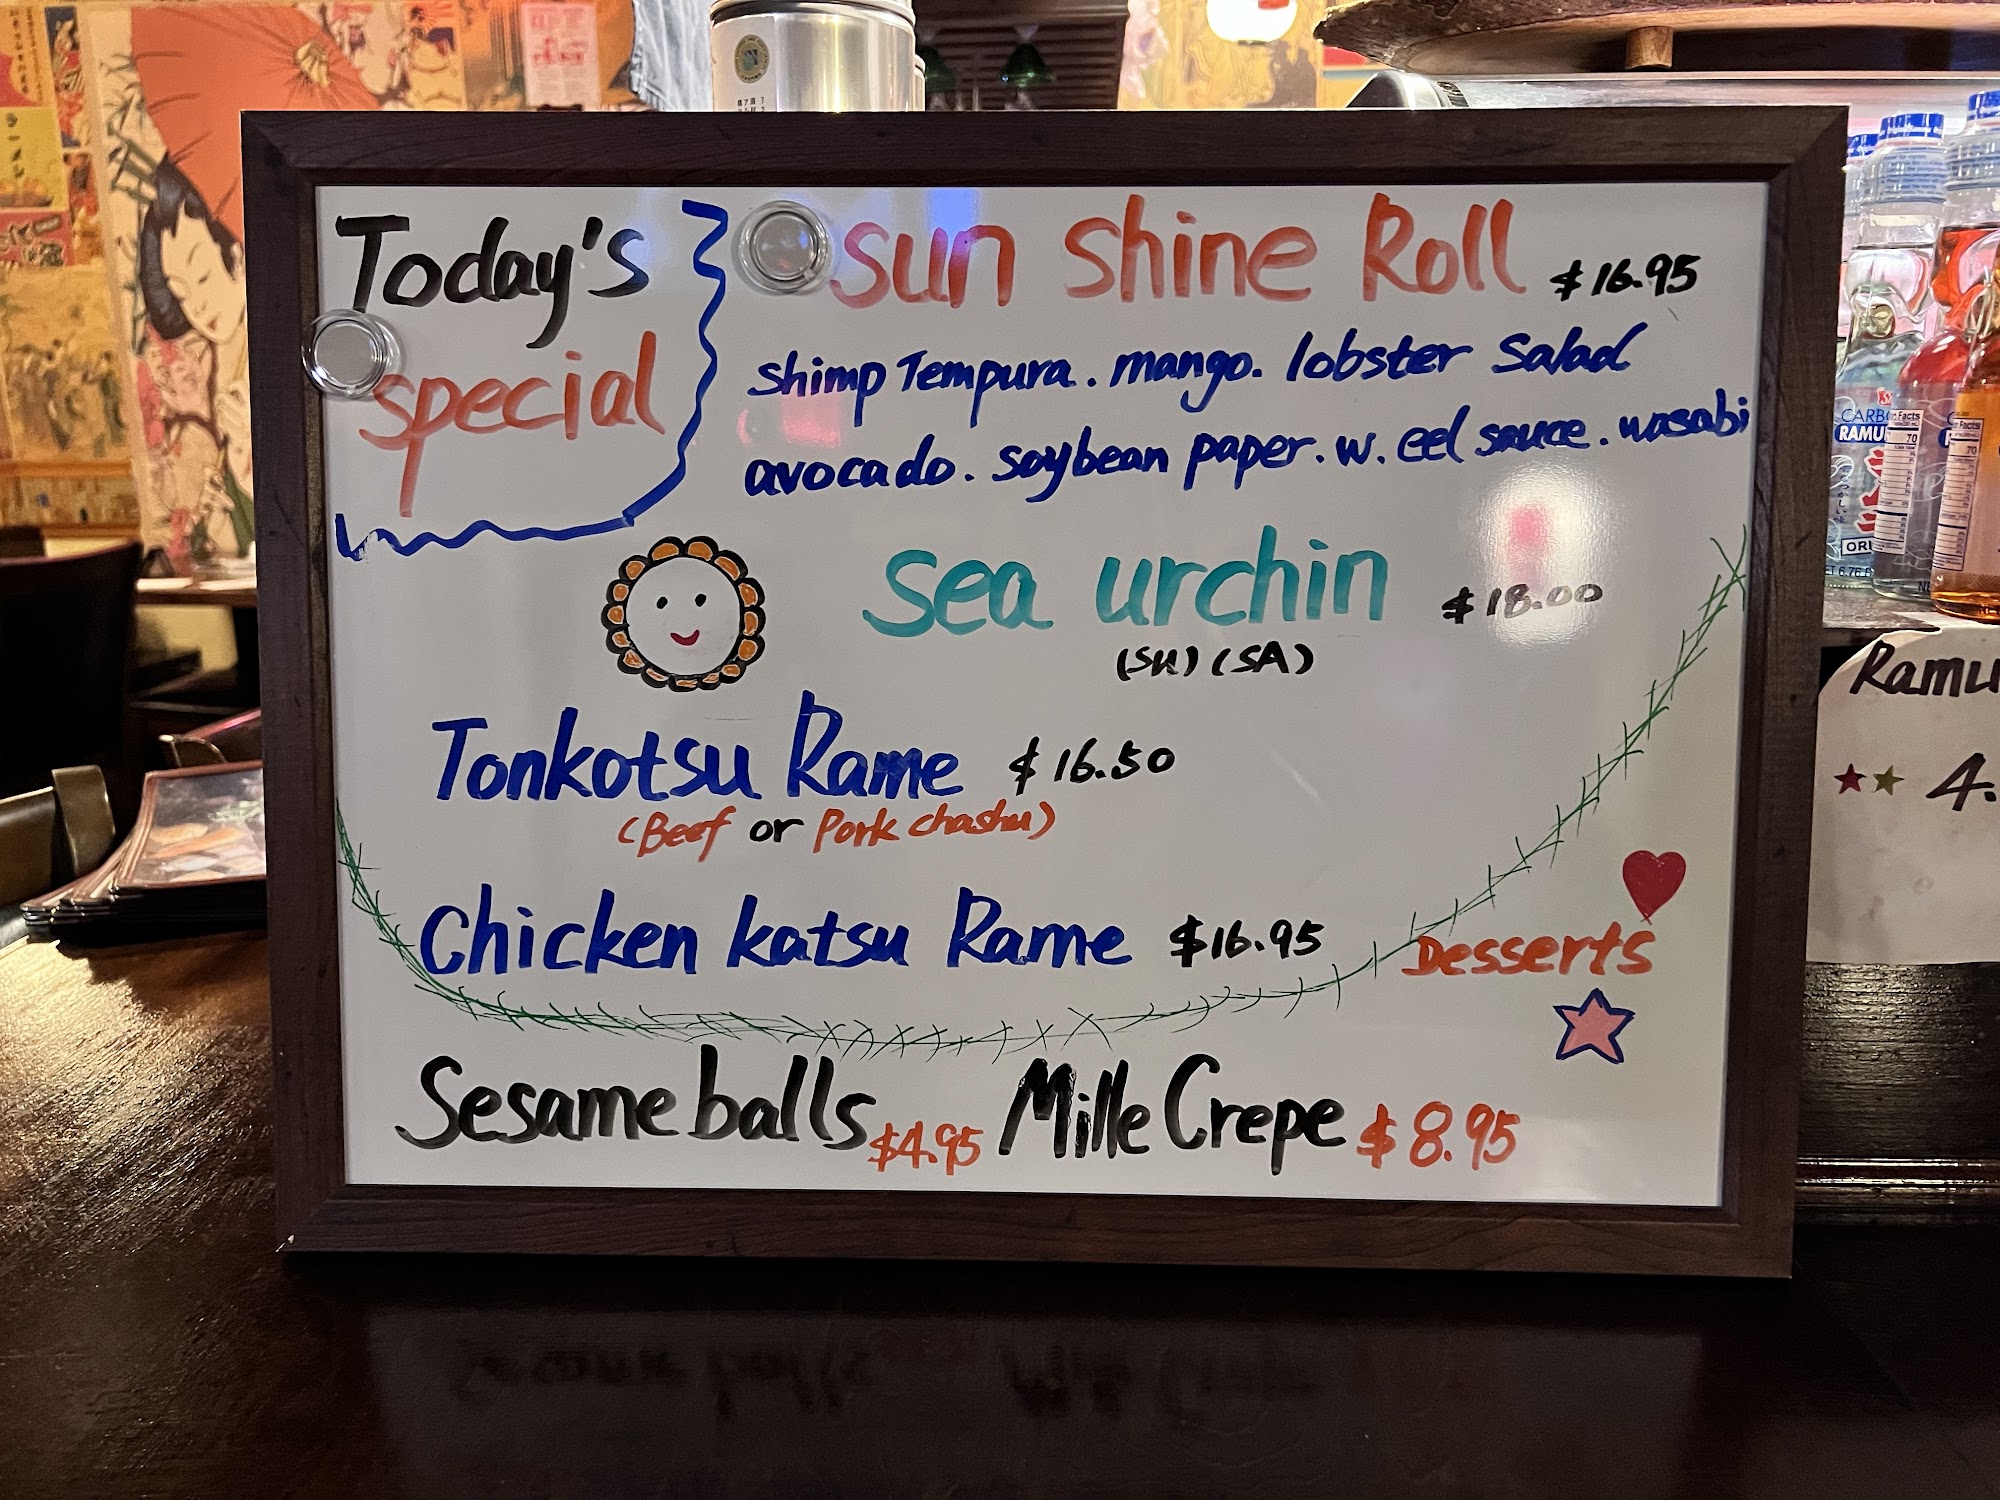 Today's
special
sun shine Roll $16.95
shimp Tempura. mango. lobster Salad
avocado. soybean paper. w. eel sauce. wasabi
sea urchin $18.00
(SU) (SA)
Tonkotsu Rame $16.50
(Beef or Pork chashu)
Chicken katsu Rame $16.95
Desserts
Sesame balls $4.95 Mille Crepe $8.95
Ramu
4.
CARB
RAMU
ORI
Facts
70
Facts
70